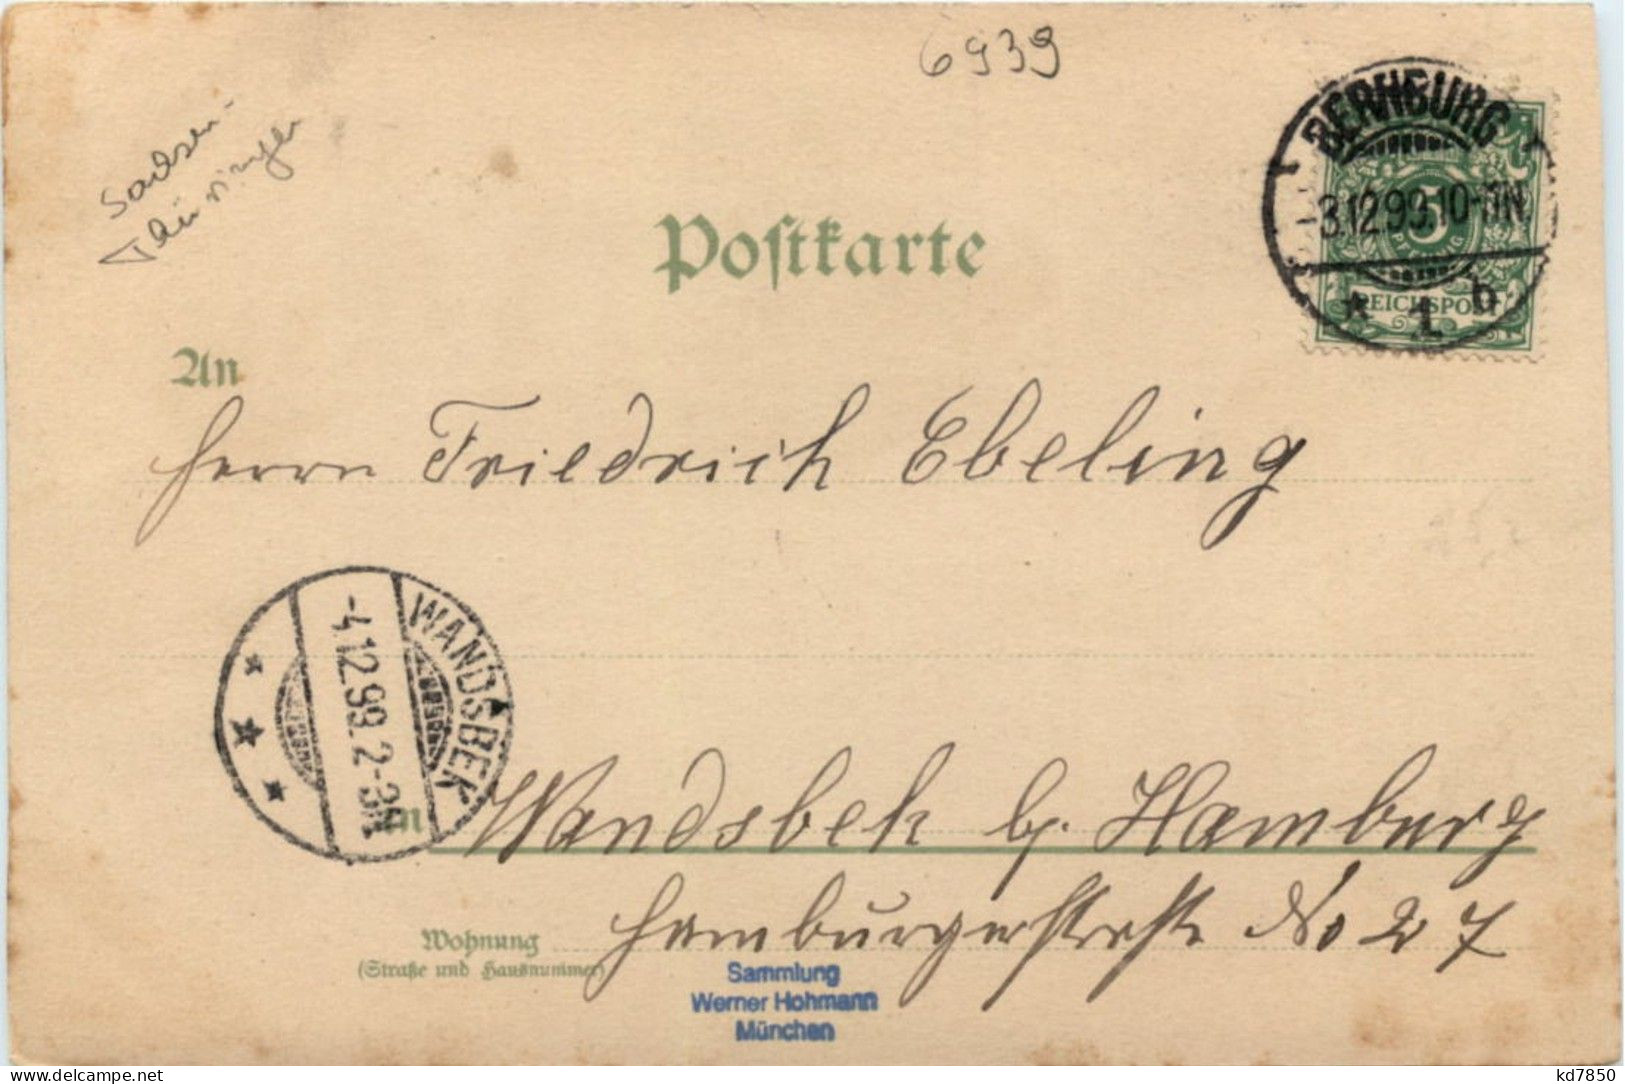 6939
BERNBURG
-3.12.99.10-11N.
* 1 b
5
PFENNIG
REICHSPOST
Sachsen-
Thüringen
Postkarte
An
Herrn Friedrich Ebeling
WANDSBEK
-4.12.99.2-3N.
in Wandsbek b/. Hamburg
Wohnung Hamburgerstraße No 27
(Straße und Hausnummer)
Sammlung
Werner Hohmann
München
delcampe.net
kd7850